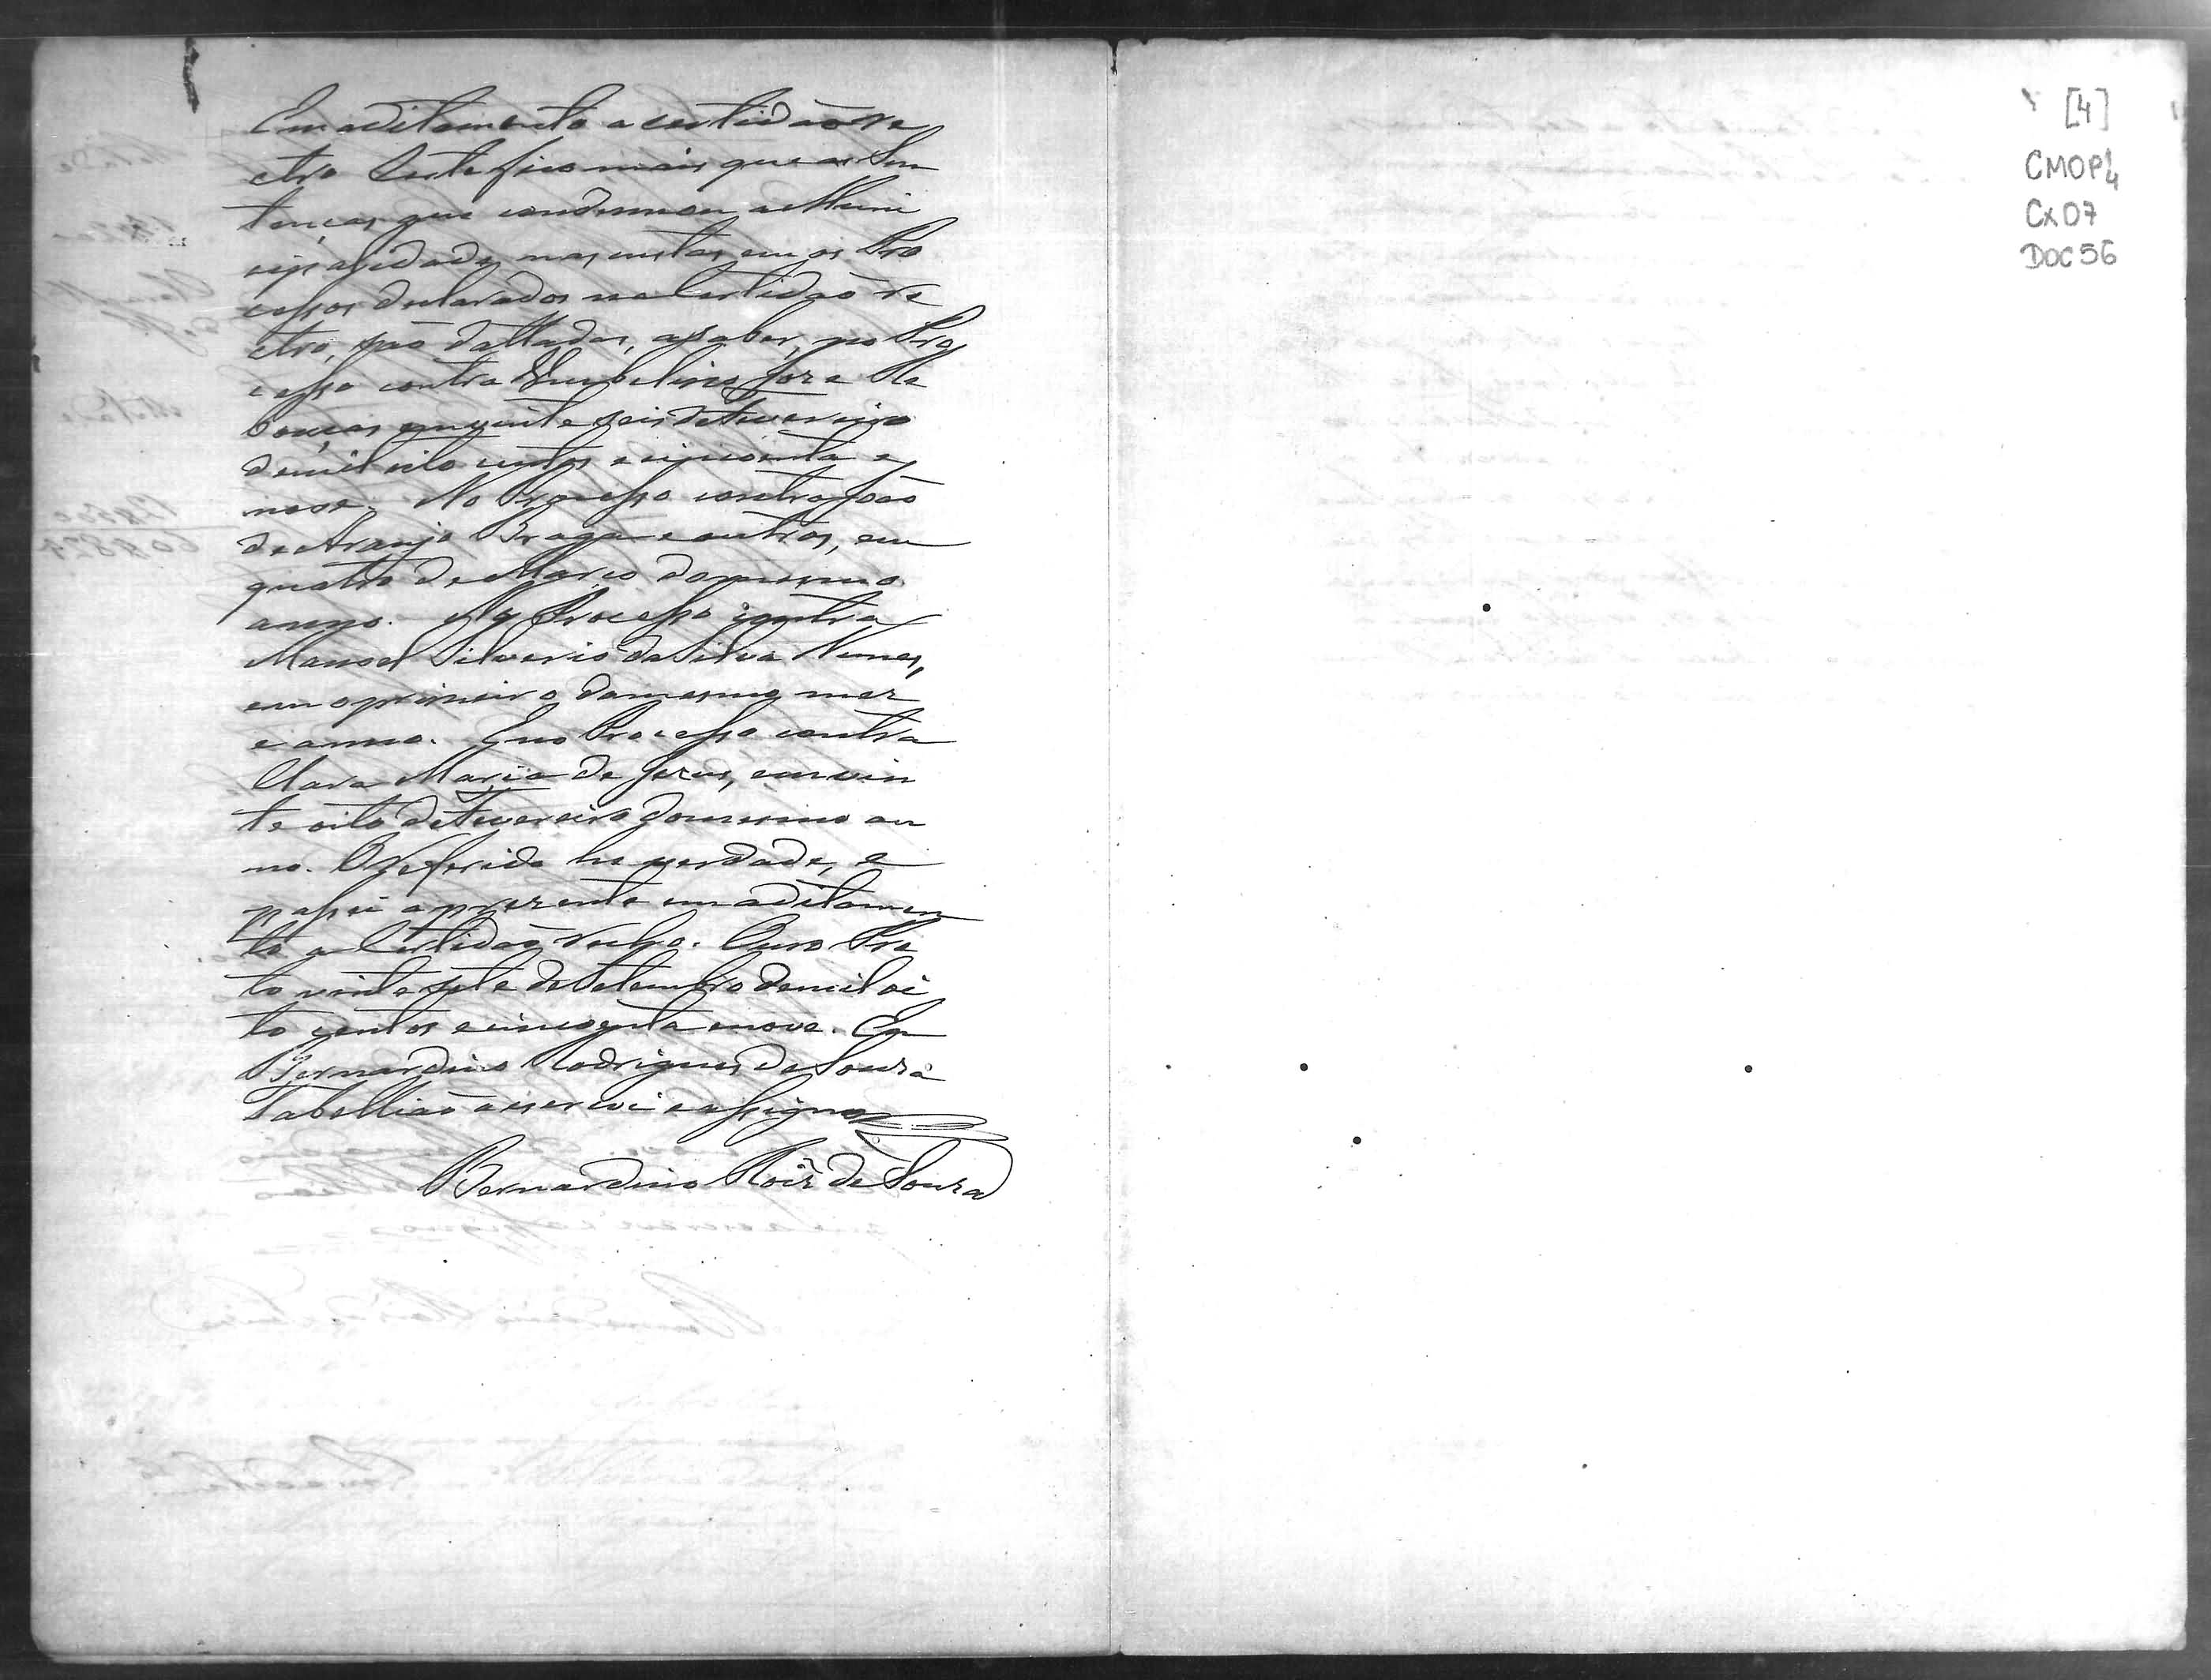 Em aditamento a certidão re
ctro Certefico mais que as Sen
tenças que condemnou a Muni
cipalidade nas custas em os Pro
cessos declarados na Certidão re
ctro, são dattadas, a saber, no Pro
cesso contra Umbelino Joze Re
bouças em vinte seis de Fevereiro
de mil oito centos e cincoenta e
nove. No Processo contra João
de Araujo Braga e outros, em
quatro de Março do mesmo
anno. No Processo contra
Manoel Silverio da Silva Nunes,
em o primeiro do mesmo mez
e anno. E no Processo contra
Clara Maria de Jezus, em vin
te oito de Fevereiro do mesmo an
no. O Referido he verdade, e
passei a prezente em aditamen
to a Certidão retro. Ouro Pre
to vinte sete de Setembro de mil oi
to centos e cincoenta e nove. Eu
Bernardino Rodrigues de Souza
Tabellião a escrevi e assigno
Bernardino Roiz de Souza
[4]
CMOP4
Cx07
DOC56